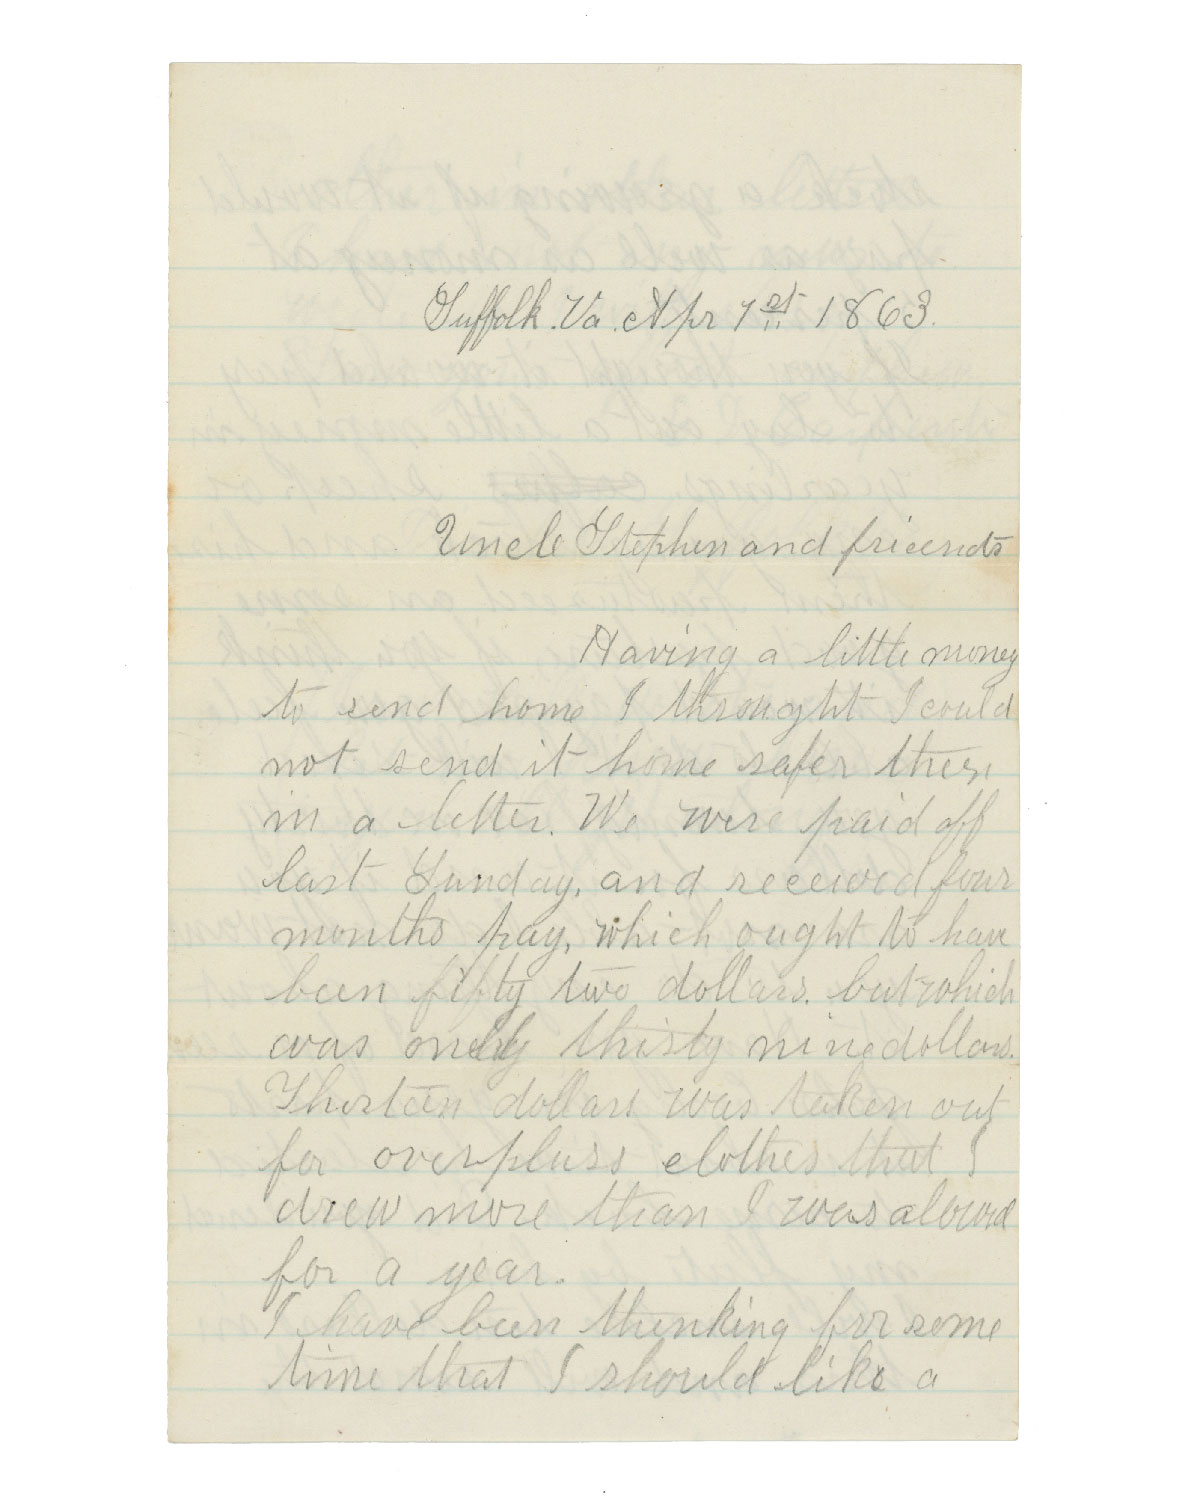 Suffolk. Va. Apr 1st 1863.
Uncle Stephen and frieends
Having a little money
to send home I throught I could
not send it home safer then
in a letter. We were paid off
last Sunday, and received four
months pay, which ought to have
been fifty two dollars. but which
was onely thirty nine dollars.
Thirteen dollars was taken out
for overpluss clothes that I
drew more than I was alowed
for a year.
I have been thinking for some
time that I should like a